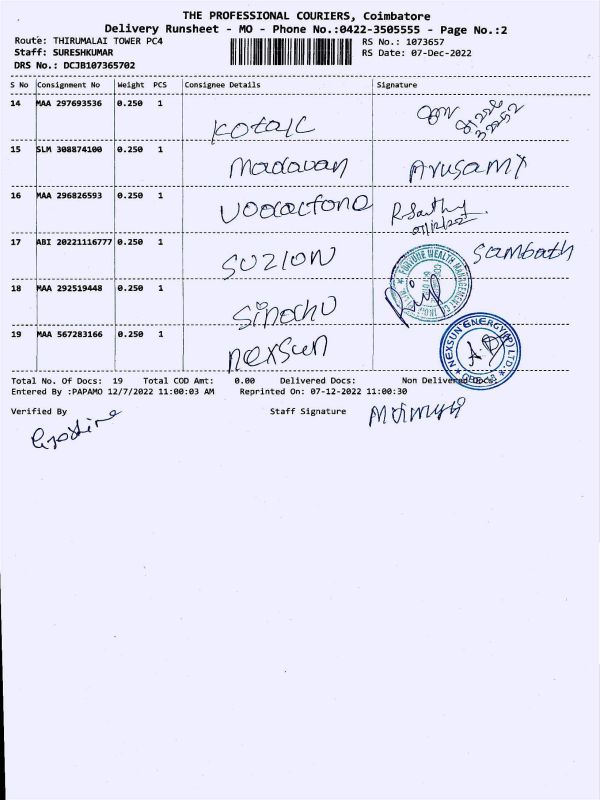 THE PROFESSIONAL COURIERS, Coimbatore
Delivery Runsheet - MO - Phone No.:0422-3505555 - Page No.:2
Route: THIRUMALAI TOWER PC4 RS No.: 1073657
Staff: SURESHKUMAR RS Date: 07-Dec-2022
DRS No.: DCJB107365702
S No Consignment No Weight PCS Consignee Details Signature
14 MAA 297693536 0.250 1 Kotak
15 SLM 308874100 0.250 1 Madavan Arusamy
16 MAA 296826593 0.250 1 R. Sathy
07/12/22
17 ABI 20221116777 0.250 1 SUZLON Sambath
18 MAA 292519448 0.250 1
FORTUNE WEALTH MANAGEMENT CO.
19 MAA 567283166 0.250 1 nexsun
NEXSUN ENERGY (P) LTD.
Total No. Of Docs: 19 Total COD Amt: 0.00 Delivered Docs: Non Delivered Docs:
Entered By :PAPAMO 12/7/2022 11:00:03 AM Reprinted On: 07-12-2022 11:00:30
Verified By Staff Signature